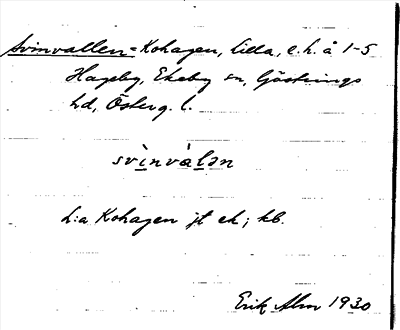 Svinvallen = Kohagen, lilla, e.h. å 1-5
Hageby, Ekeby sn, Göstrings
hd, Österg. l.
svìnvàlən
L:a Kohagen jt ek; kb.
Erik Alm 1930